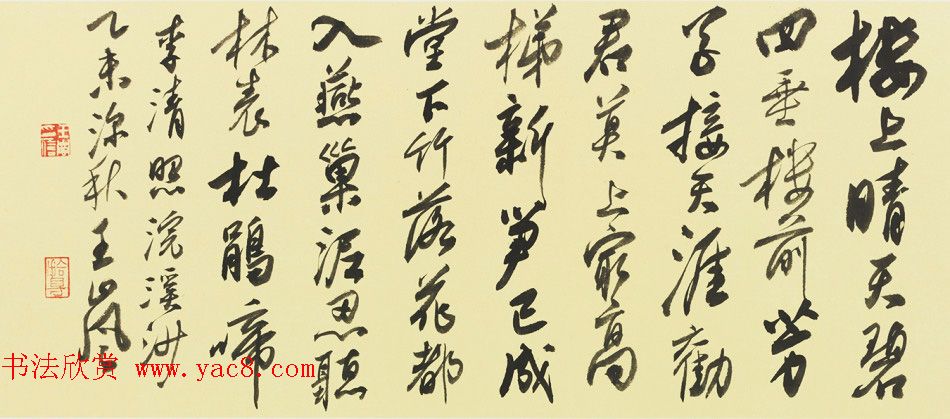 楼上晴天碧
四垂楼前芳
草接天涯勸
君莫上最高
梯新笋已成
堂下竹落花都
入燕巢泥忍聽
林表杜鵑啼
李清照浣溪沙
乙未深秋王嵐
书法欣赏 www.yac8.com